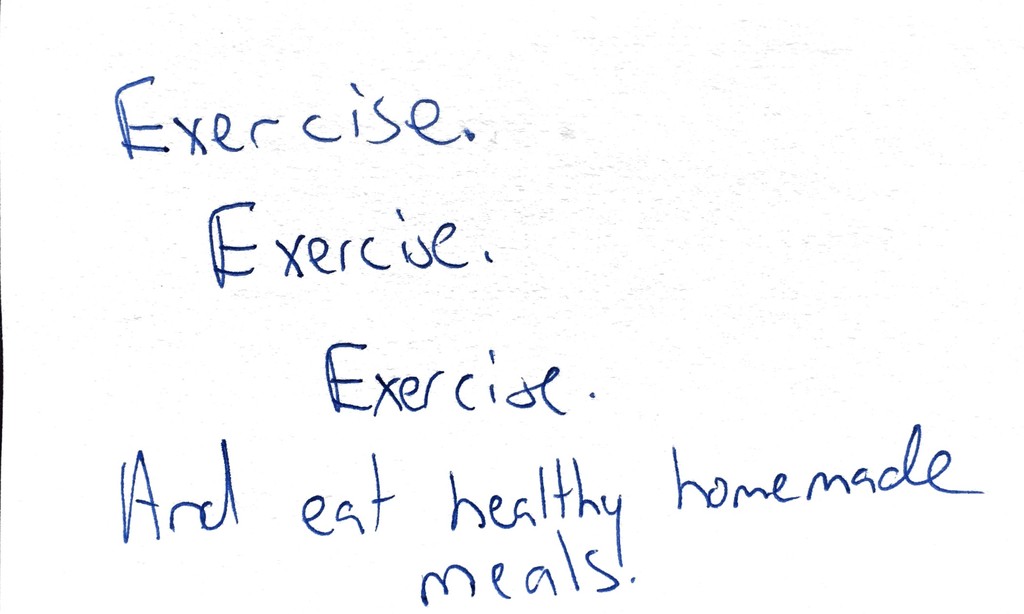 Exercise.
Exercise.
Exercise.
And eat healthy homemade
meals!